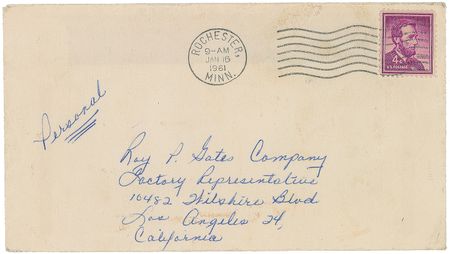 ROCHESTER,
9-AM
JAN 16
1961
MINN.
4¢
U.S. POSTAGE
Personal
Roy P. Gates Company
Factory Representative
10482 Wilshire Blvd
Los Angeles 24,
California